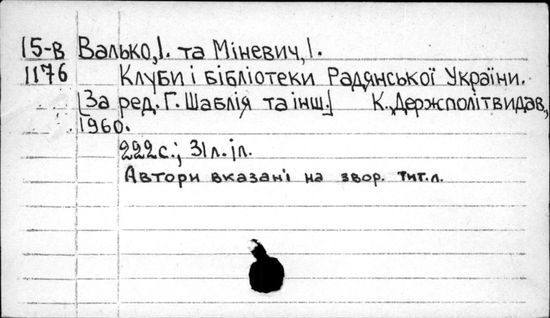 15-в Валько, І. та Міневич, І.
1176 Клуби і бібліотеки Радянської України.
[За ред. Г. Шаблія та інш.] К., Держполітвидав,
1960.
222с.; 31л. іл.
Автори вказані на звор. тит. л.